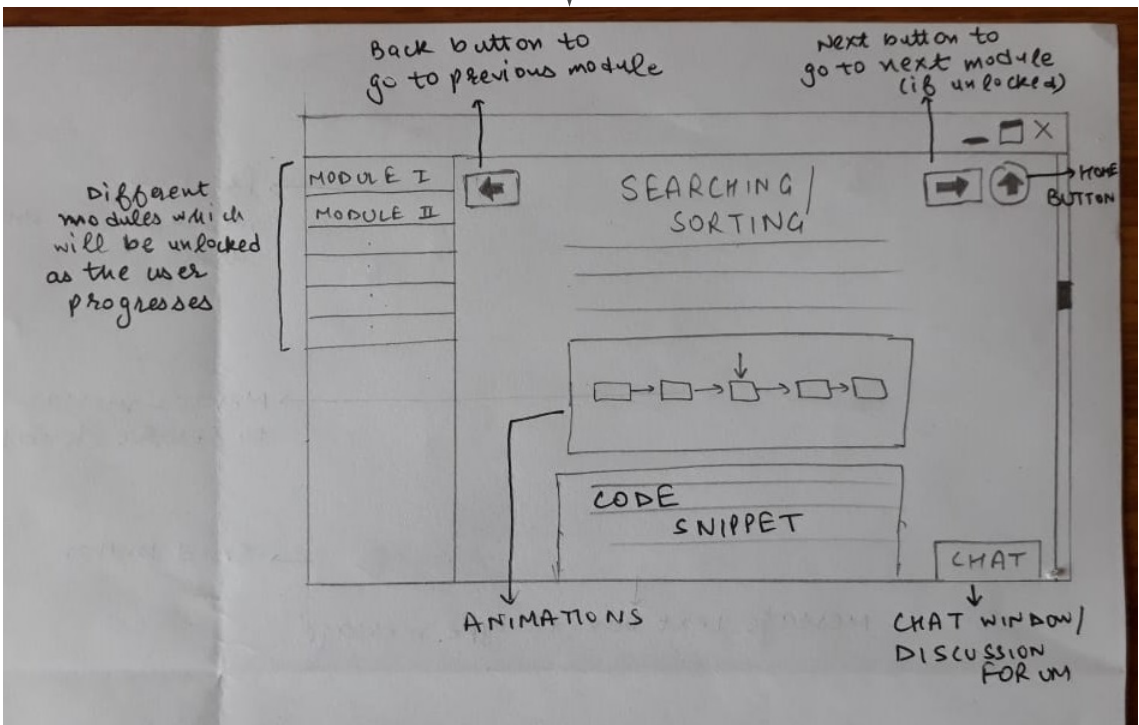 Back button to
go to previous module
Next button to
go to next module
(if unlocked)
Different
modules which
will be unlocked
as the user
progresses
MODULE I
MODULE II
SEARCHING/
SORTING
HOME
BUTTON
CODE
SNIPPET
CHAT
ANIMATIONS
CHAT WINDOW/
DISCUSSION
FORUM